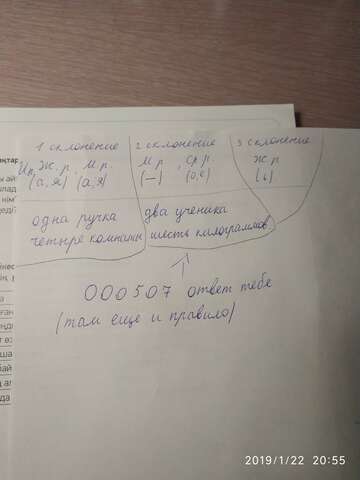 1 склонение 2 склонение 3 склонение
Ип. Ж.р. М.р. М.р. Ср.р. Ж.р
(а,я) (а,я) (—) (о,е) (ь)
одна ручка два ученика
четыре комнаты шесть килограммов
000507 ответ тебе
(там еще и правило)
2019/1/22 20:55